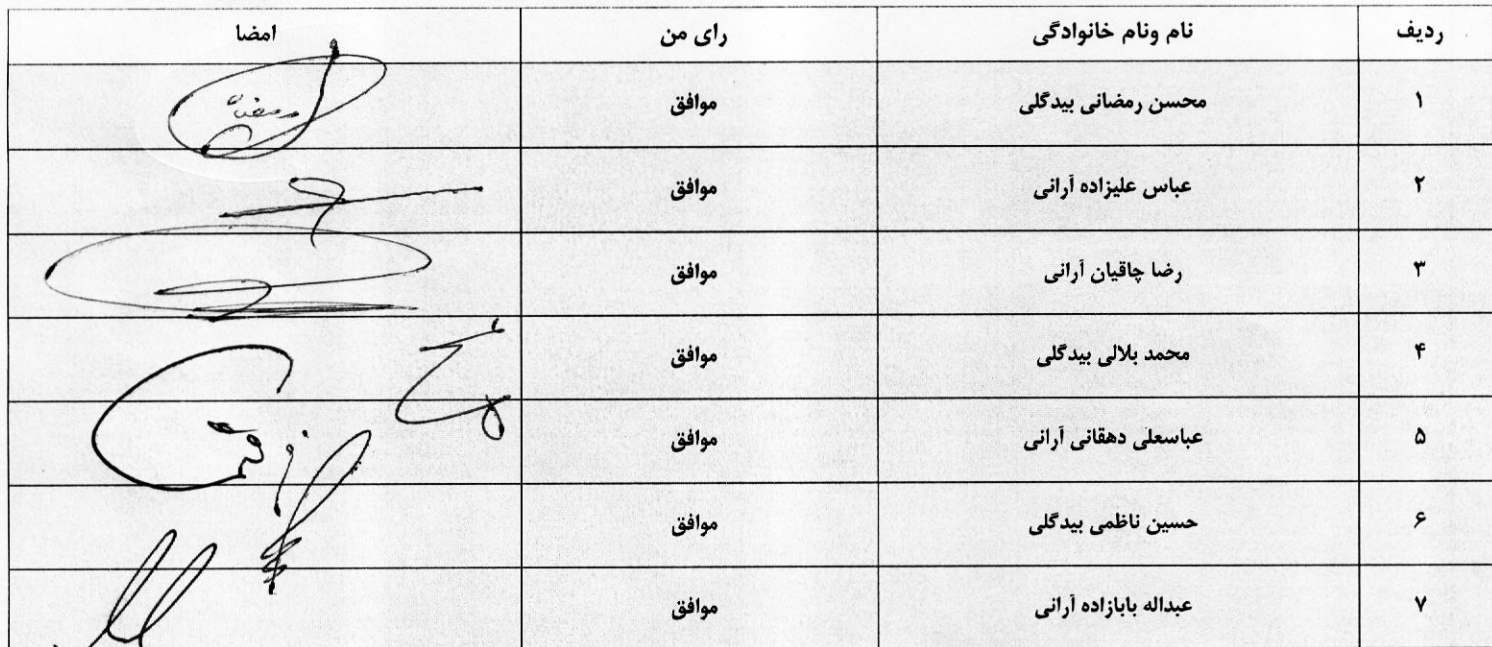 ردیف نام ونام خانوادگی رای من امضا
۱ محسن رمضانی بیدگلی موافق
۲ عباس علیزاده آرانی موافق
۳ رضا چاقیان آرانی موافق
۴ محمد بلالی بیدگلی موافق
۵ عباسعلی دهقانی آرانی موافق
۶ حسین ناظمی بیدگلی موافق
۷ عبداله بابازاده آرانی موافق